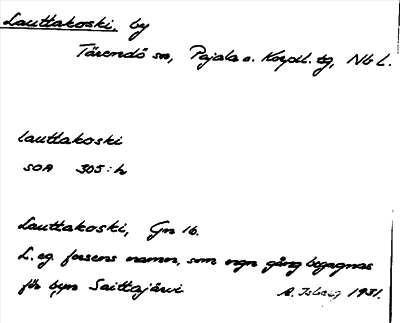 Lauttakoski, by
Tärendö sn, Pajala o. Korpil. tg, Nb L.
lauttakoski
SOA 305:h
Lauttakoski, Gn 16.
L. eg. forsens namn, som ngn gång begagnas
för byn Saittajärvi
A. Isberg 1931.